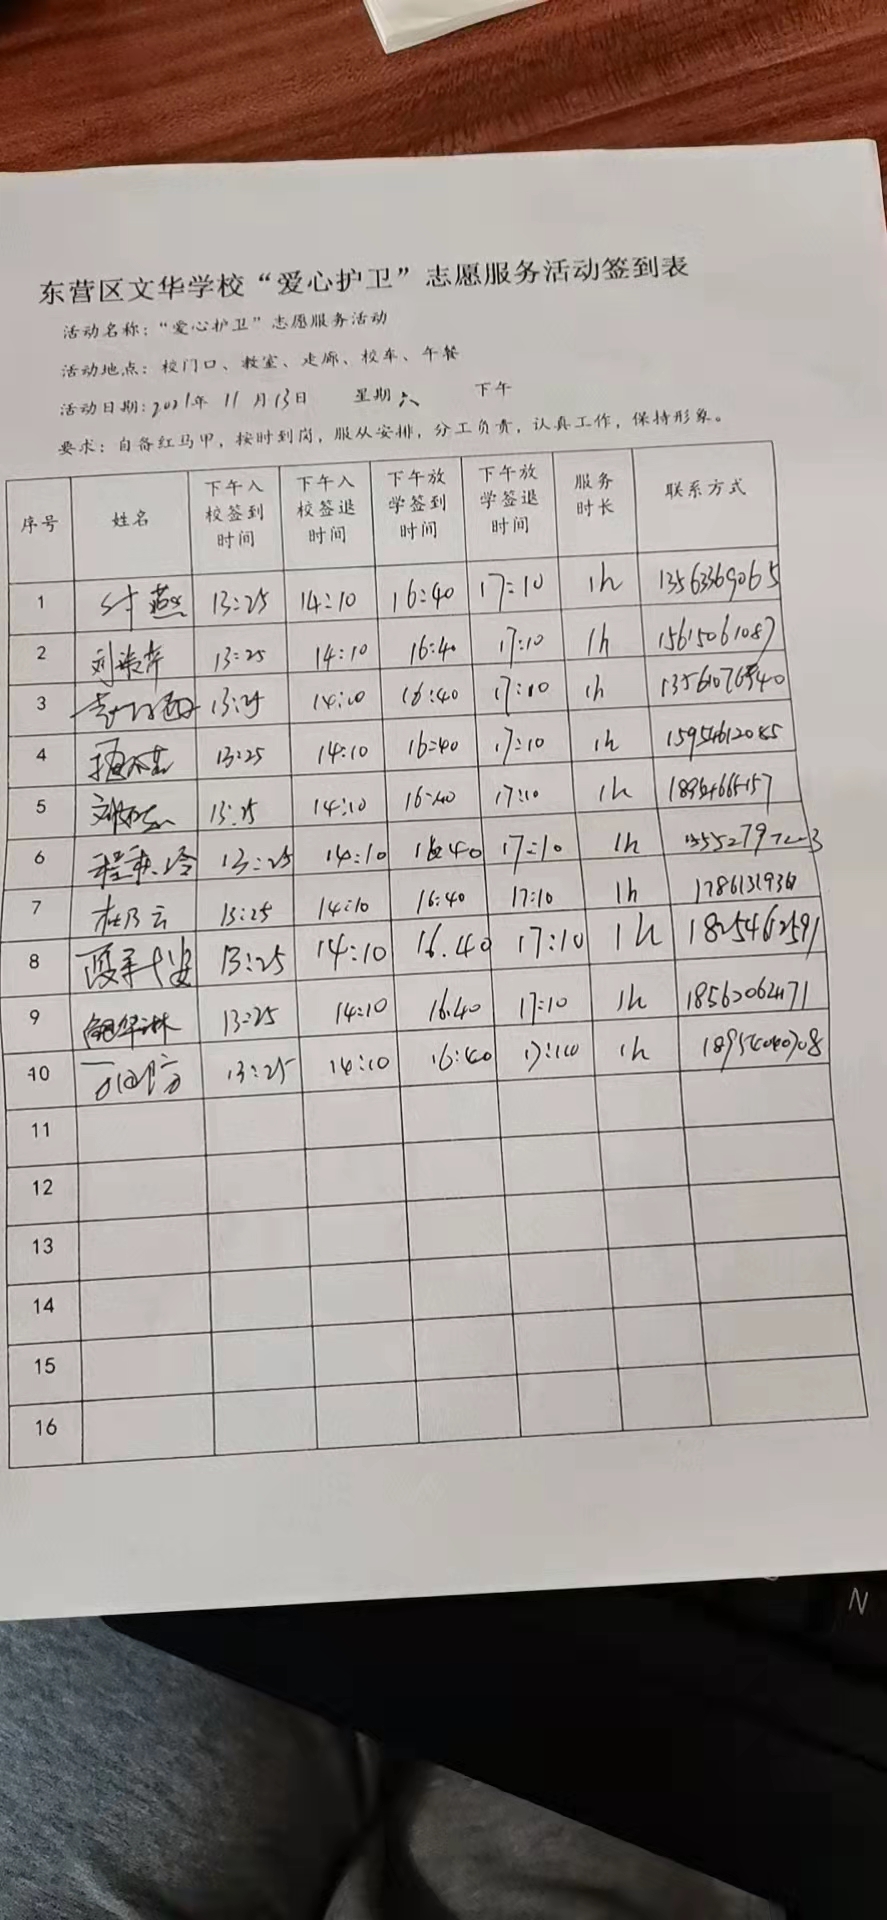 东营区文华学校“爱心护卫”志愿服务活动签到表
活动名称：“爱心护卫”志愿服务活动
活动地点：校门口、教室、走廊、校车、午餐
活动日期：2021年 11 月13日 星期六 下午
要求：自备红马甲，按时到岗，服从安排，分工负责，认真工作，保持形象。
序号 姓名 下午入校签到时间 下午入校签退时间 下午放学签到时间 下午放学签退时间 服务时长 联系方式
1 13:25 14:10 16:40 17:10 1h 13563369065
2 13:25 14:10 16:40 17:10 1h 15615061087
3 13:25 14:10 16:40 17:10 1h
4 13:25 14:10 16:40 17:10 1h
5 13:25 14:10 16:40 17:10 1h
6 13:25 14:10 16:40 17:10 1h
7 杜乃云 13:25 14:10 16:40 17:10 1h
8 13:25 14:10 16.40 17:10 1h 1825462591
9 13:25 14:10 16.40 17:10 1h
10 13:25 14:10 16:40 17:10 1h
11
12
13
14
15
16
N